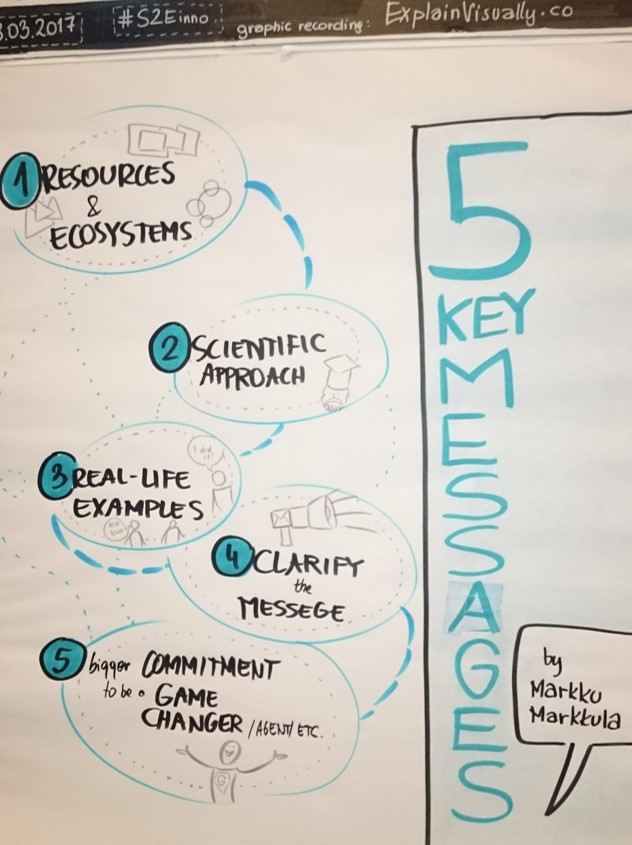 3.03.2017
#S2Einno
graphic recording: ExplainVisually.co
1 RESOURCES
&
ECOSYSTEMS
2 SCIENTIFIC
APPROACH
3 REAL-LIFE
EXAMPLES
I did it!
4 CLARIFY
the
MESSEGE
5 bigger COMMITMENT
to be a GAME
CHANGER /AGENT/ ETC.
G
5
KEY
MESSAGES
by
Markku
Markkula